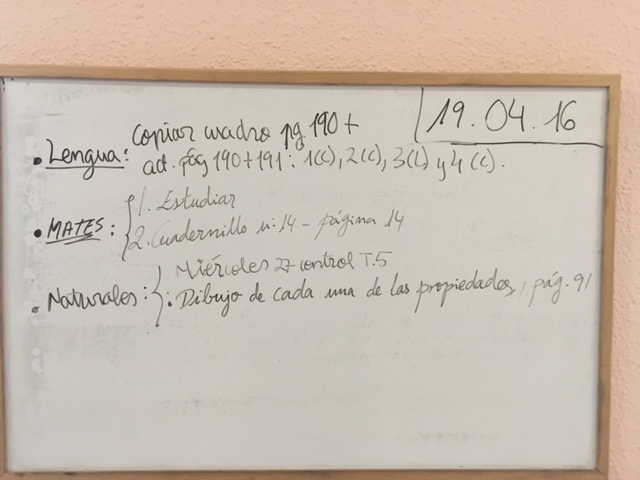 19.04.16
Copiar cuadro pg 190 +
• Lengua: act. pág 190+191: 1(c), 2(c), 3(L) y 4(c).
1. Estudiar
• MATES:
2. Cuadernillo nº 14 - página 14
Miércoles 27 control T.5
• Naturales: : Dibujo de cada una de las propiedades, pág. 91